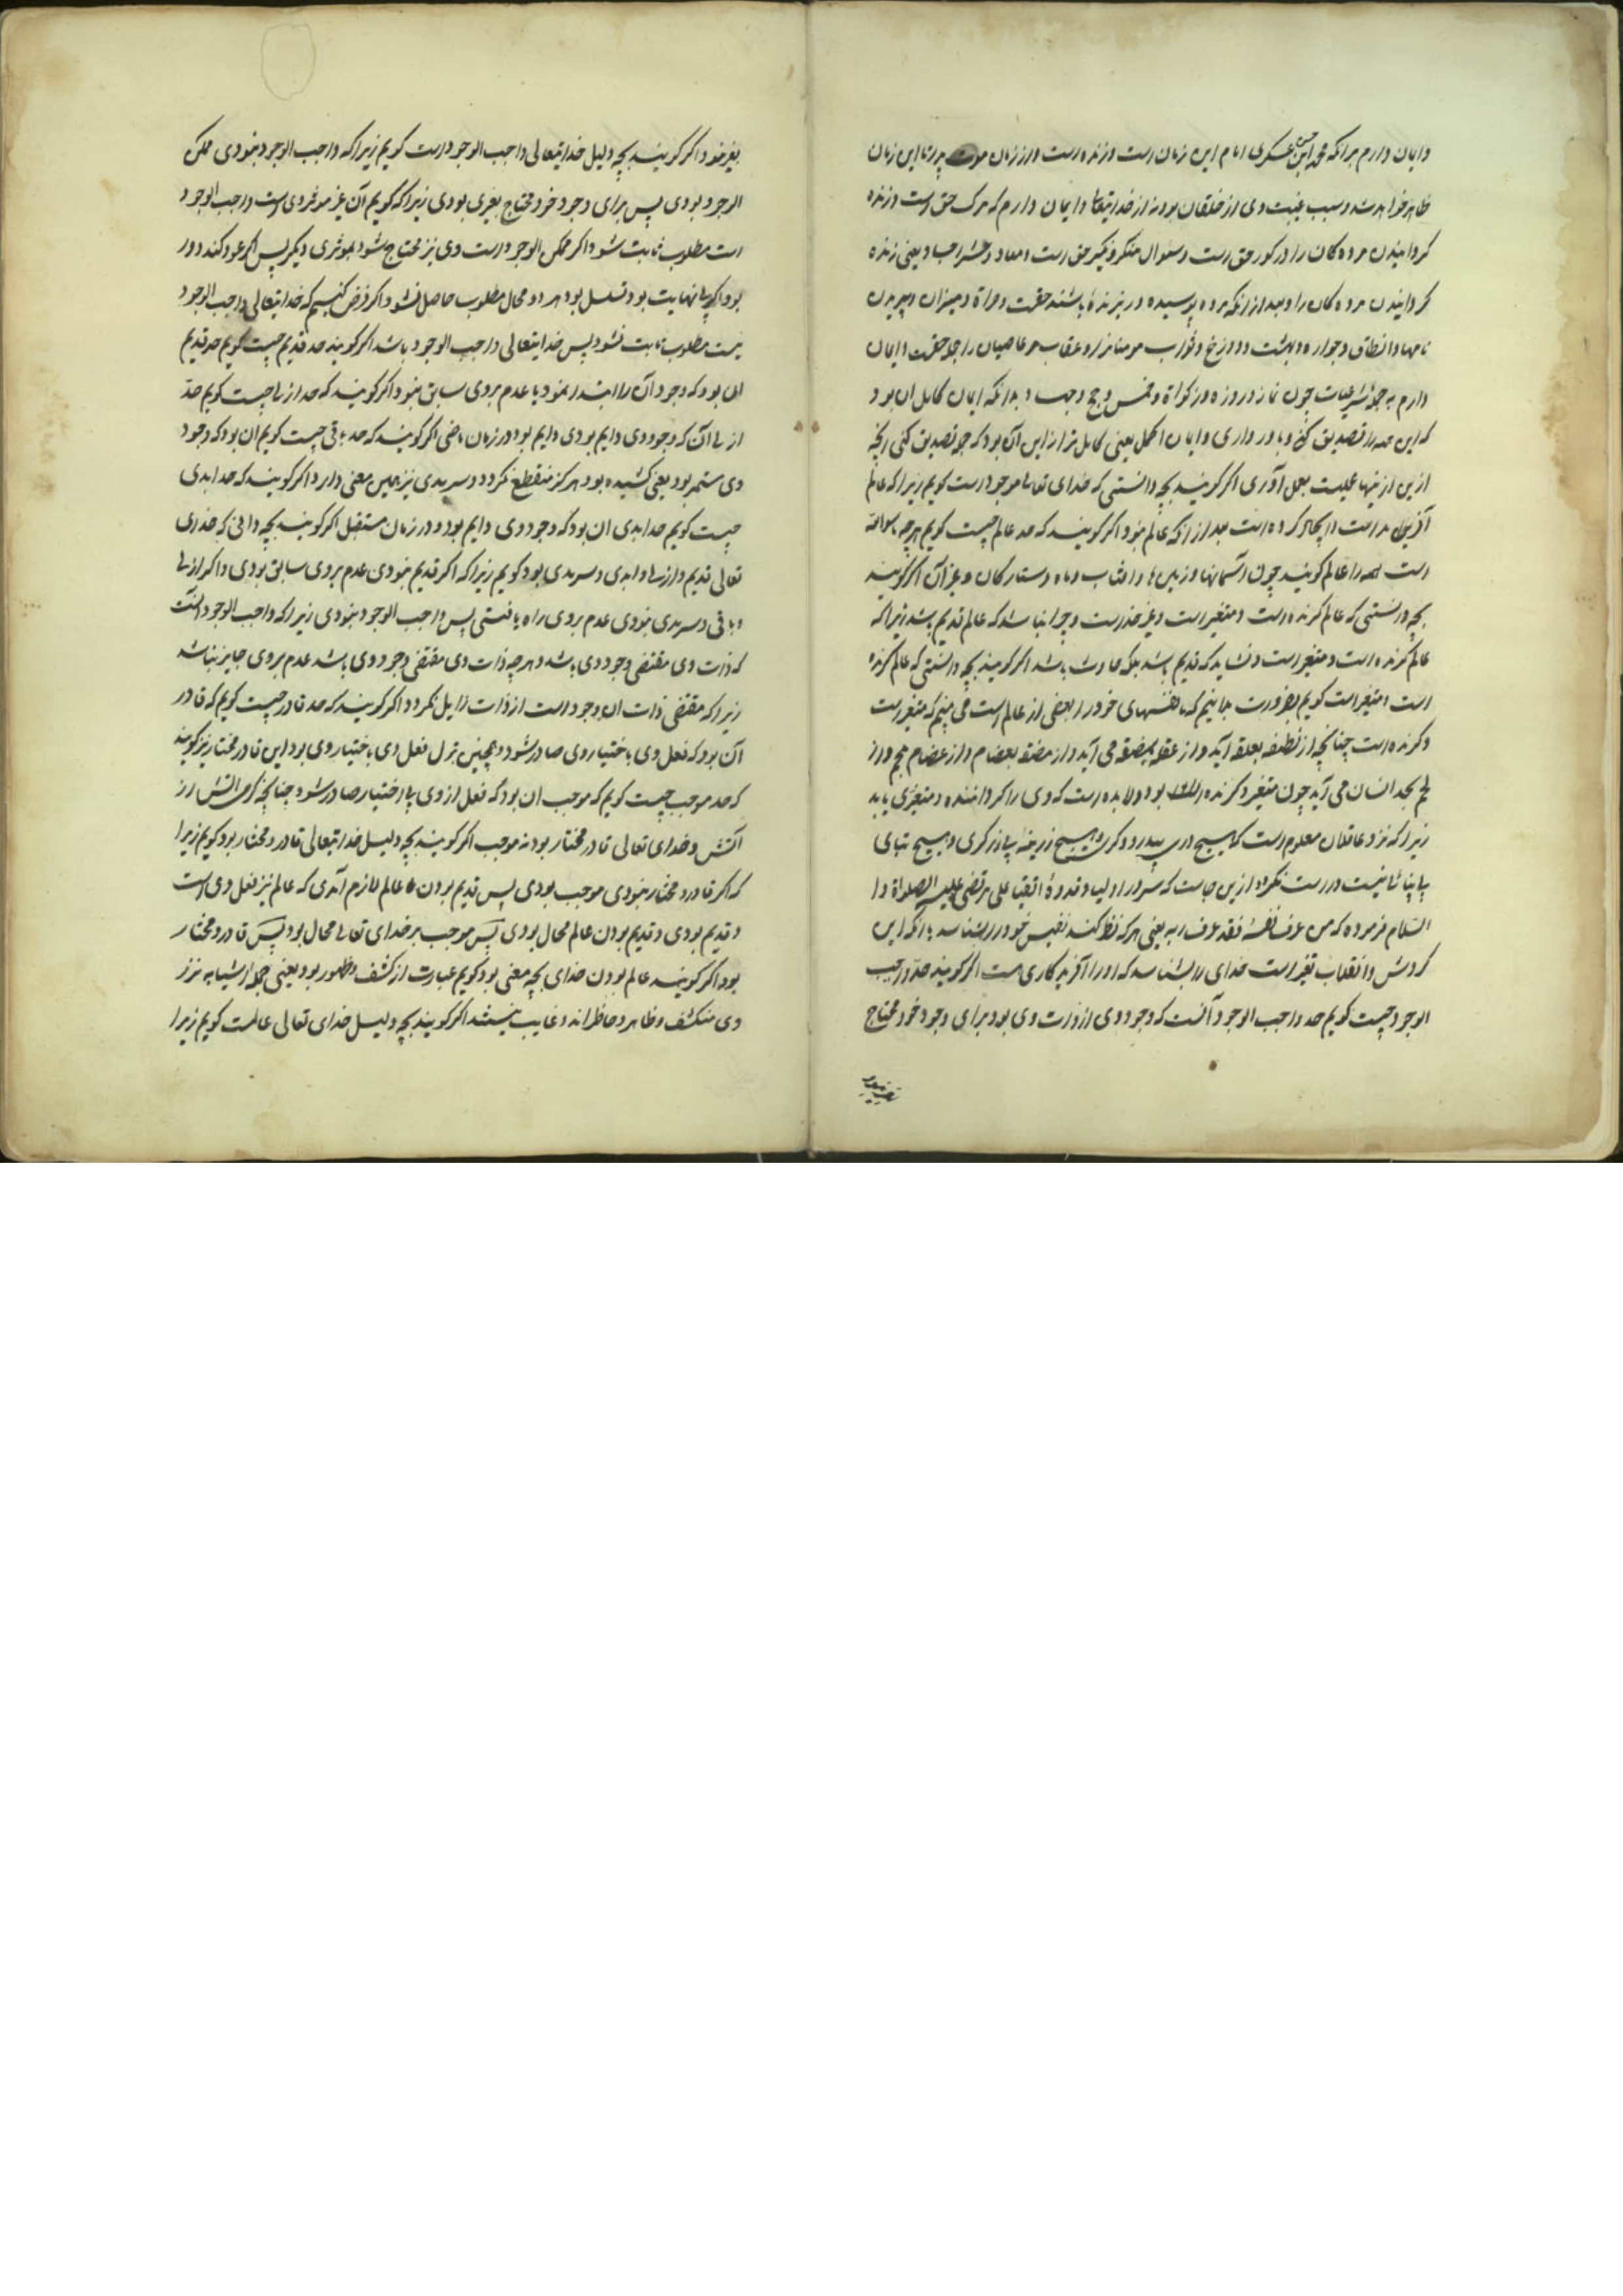 وایمان دارم برانکه محمد ابن حسن عسکری امام این زمان است و زنده است و از زمان موت پدر تا این زمان
ظاهر خواهد شد و سبب غیبت وی از خلقان بود نه از خدایتعالی و ایمان دارم که مرک حق است و زنده
کردانیدن مرده کان را در کور حق است و سئوال منکر و نکیر حق است و معاد و حشر اجساد یعنی زنده
کردانیدن مرده کان را و بعد از انکه مرده پوسیده و ریزیده باشند حقست و صراة و میزان و پریدن
نامها و انطاق جوارح و بهشت و دوزخ و ثواب مومنانرا و عقاب مر عاصیان را جمله حقست و ایمان
دارم به جملهٔ شرعیات چون نماز و روزه و زکواة و خمس و حج و جهاد و بدانکه ایمان کامل ان بود
که این همه را تصدیق کنی و باور داری و ایمان اکمل یعنی کامل تر از این آن بود که جمله تصدیق کنی انچه
ازین از ینها عملیست بعمل آوری اکر کویند بچه دانستی که خدای تعالی موجود است کویم زیرا که عالم
آفریده است و ایجاد کرده است بعد از انکه عالم نبود اکر کویند که حد عالم چیست کویم هر چه ماسوالله
است همه را عالم کویند چون آسمانها و زمین ها و افتاب و ماه و ستارکان و غیر آن اکر کویند
بچه دانستی که عالم کرنده است و متغیر است و غیر خداست و چرا نباشد که عالم قدیم باشد زیرا که
عالم کرنده است و متغیر است و نشاید که قدیم باشد بلکه حادث باشد اکر کویند بچه دانستی که عالم کرنده
است و متغیر است کویم بضرورت میدانیم که ما نفسهای خود را بعضی از عالم است می بینیم که متغیر است
و کرنده است چنانچه از نطفه بعلقه آید و از علقه بمضغه می آید و از مضغه بعضام و از عضام بلحم و از
لحم بحد انسان می آید چون متغیر و کرنده بود ولابد است که وی را کرداننده و متغیری باید
زیرا که نزد عاقلان معلوم است که هیچ دری بی درودکری و هیچ زرینهٔ بی زرکری و هیچ بنای
بی بنائی نیست و راست نکردد ازین جاست که سرور اولیا و قدوهٔ اتقیا علی مرتضی علیه الصلواة و ا
السلام فرموده که من عرف نفسهٔ فقد عرف ربه یعنی هر که نظر کند نفس خود را بشناسد بانکه این
کردش و انقلاب تغیر است خدای را بشناسد که او را آفریدکاری هست اکر کویند حدّ واجب
الوجود چیست کویم حد واجب الوجود آنست که وجود وی از ذات وی بود برای وجود خود محتاج
بغیر نبود اکر کویند بچه دلیل خدایتعالی واجب الوجود است کویم زیرا که واجب الوجود نبودی ممکن
الوجود بودی پس برای وجود خود محتاج بغیری بودی زیرا که کویم آن غیر موثر وی است واجب الوجود
است مطلوب ثابت شود و اکر ممکن الوجود است وی نیز محتاج شود بموثری دیکر پس اکر عود کند دور
بود و اکر بی نهایت بود تسلسل بود هر دو محال مطلوب حاصل نشود و اکر فرض کنیم که خدایتعالی واجب الوجود
نیست مطلوب ثابت نشود پس خدایتعالی واجب الوجود باشد اکر کویند حد قدیم چیست کویم حد قدیم
ان بود که وجود آن را ابتدا نبود یا عدم بر وی سابق نبود و اکر کویند که حد ازلی چیست کویم حدّ
ازلی آن که وجود وی دایم بودی دایم بود در زمان ماضی اکر کویند که حد باقی چیست کویم ان بود که وجود
وی مستمر بود یعنی کشیده بود هر کز منقطع نکردد و سرمدی نیز همین معنی دارد اکر کویند که حد ابدی
چیست کویم حد ابدی ان بود که وجود وی دایم بود و در زمان مستقبل اکر کویند بچه دانی که خدای
تعالی قدیم و ازلی و ابدی و سرمدی بود کویم زیرا که اکر قدیم نبودی عدم بر وی سابق بودی و اکر ازلی
و باقی و سرمدی نبودی عدم بر وی راه یافتی پس واجب الوجود نبودی زیرا که واجب الوجود انست
که ذات وی مقتضی وجود وی باشد و هر چه ذات وی مقتضی وجود وی باشد عدم بر وی جایز نباشد
زیرا که مقتضی ذات ان وجود است از ذات زایل نکردد اکر کویند که حد قادر چیست کویم که قادر
آن بود که فعل وی باختیار وی صادر شود و همچنین ترک فعل وی باختیار وی بود این قادر مختار نیز کویند
که حد موجب چیست کویم که موجب ان بود که فعل از وی بی اختیار صادر شود چنانچه کرمی اتش از
آتش و خدای تعالی قادر مختار بود نه موجب اکر کویند بچه دلیل خدایتعالی قادر و مختار بود کویم زیرا
که اکر قادر و مختار نبودی موجب بودی پس قدیم بودن عالم لازم آمدی که عالم نیز فعل وی است
و قدیم بودی و قدیم بودن عالم محال بودی پس موجب بر خدای تعالی محال بود پس قادر و مختار
بود اکر کویند عالم بودن خدای بچه معنی بود کویم عبارت از کشف و ظهور بود یعنی جمله اشیا به نزد
وی منکشف و ظاهر و حاظر اند و غایب نیستند اکر کویند بچه دلیل خدای تعالی عالمست کویم زیرا